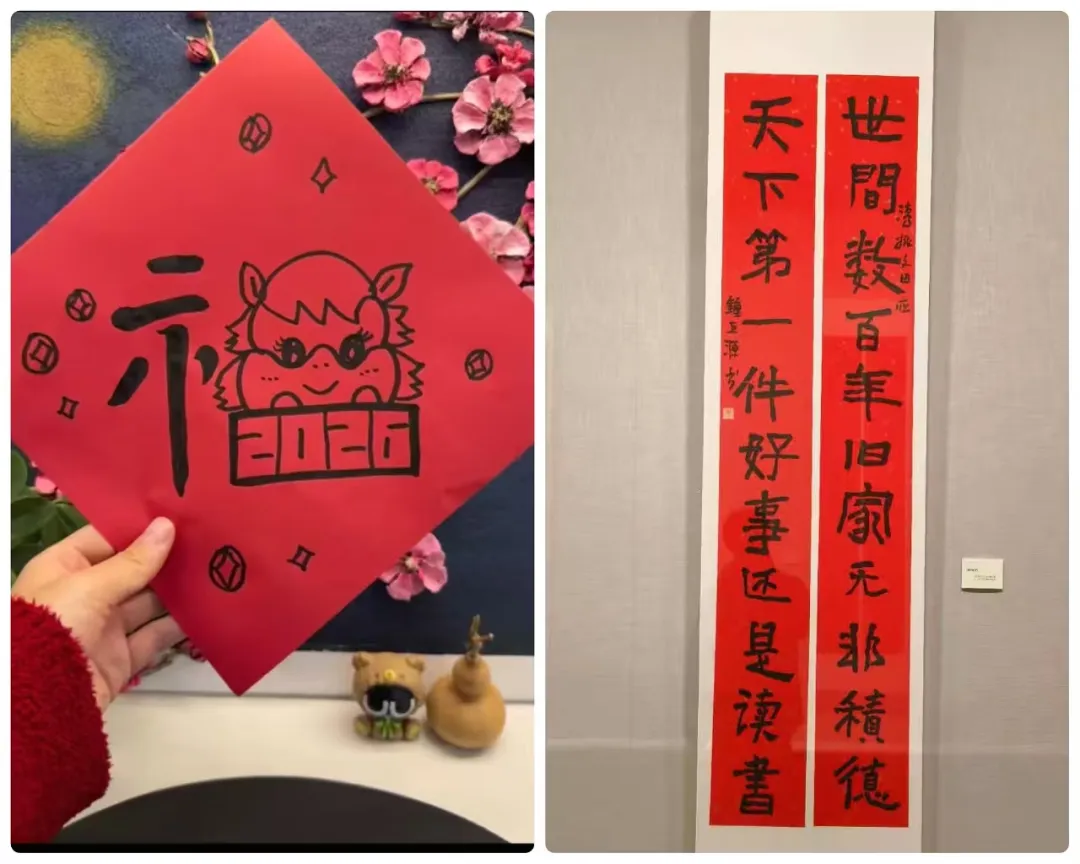 礻
2026
世間数百年旧家无非積德
天下第一件好事还是读书